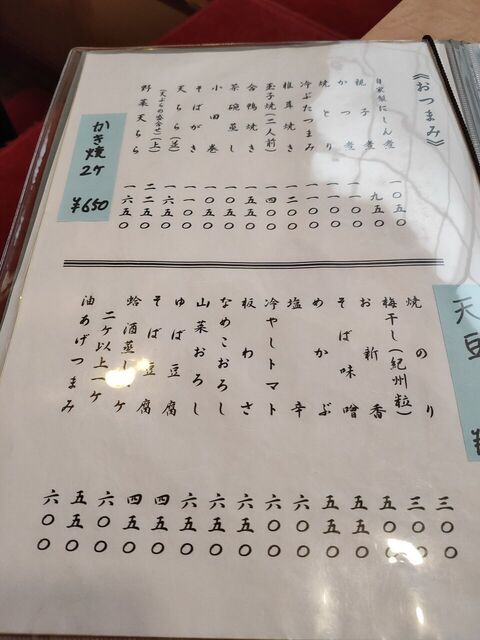 《おつまみ》
自家製にしん煮 一〇五〇
親子煮 九五〇
かつ煮 一一〇〇
焼とり 一一〇〇
冷ぶたつまみ 一一〇〇
椎茸焼き 一二〇〇
玉子焼(二人前) 一四〇〇
合鴨焼き 一五五〇
茶碗蒸し 一〇五〇
小田巻 一〇五〇
そばがき 一一〇〇
天ちら(並) 一六五〇
(天ぷらの盛合せ)(上) 二二五〇
野菜天ちら 一六五〇
かき焼
2ケ
¥650
焼のり 三〇〇
梅干し(紀州粒) 三〇〇
お新香 五〇〇
そば味噌 五五〇
めかぶ 五五〇
塩辛 六〇〇
冷やしトマト 六〇〇
板わさ 六五〇
なめこおろし 六五〇
山菜おろし 六五〇
ゆば豆腐 四五〇
そば豆腐 四五〇
蛤酒蒸し一ケ 六〇〇
二ケ以上一ケ 五五〇
油あげつまみ 六〇〇
天豆